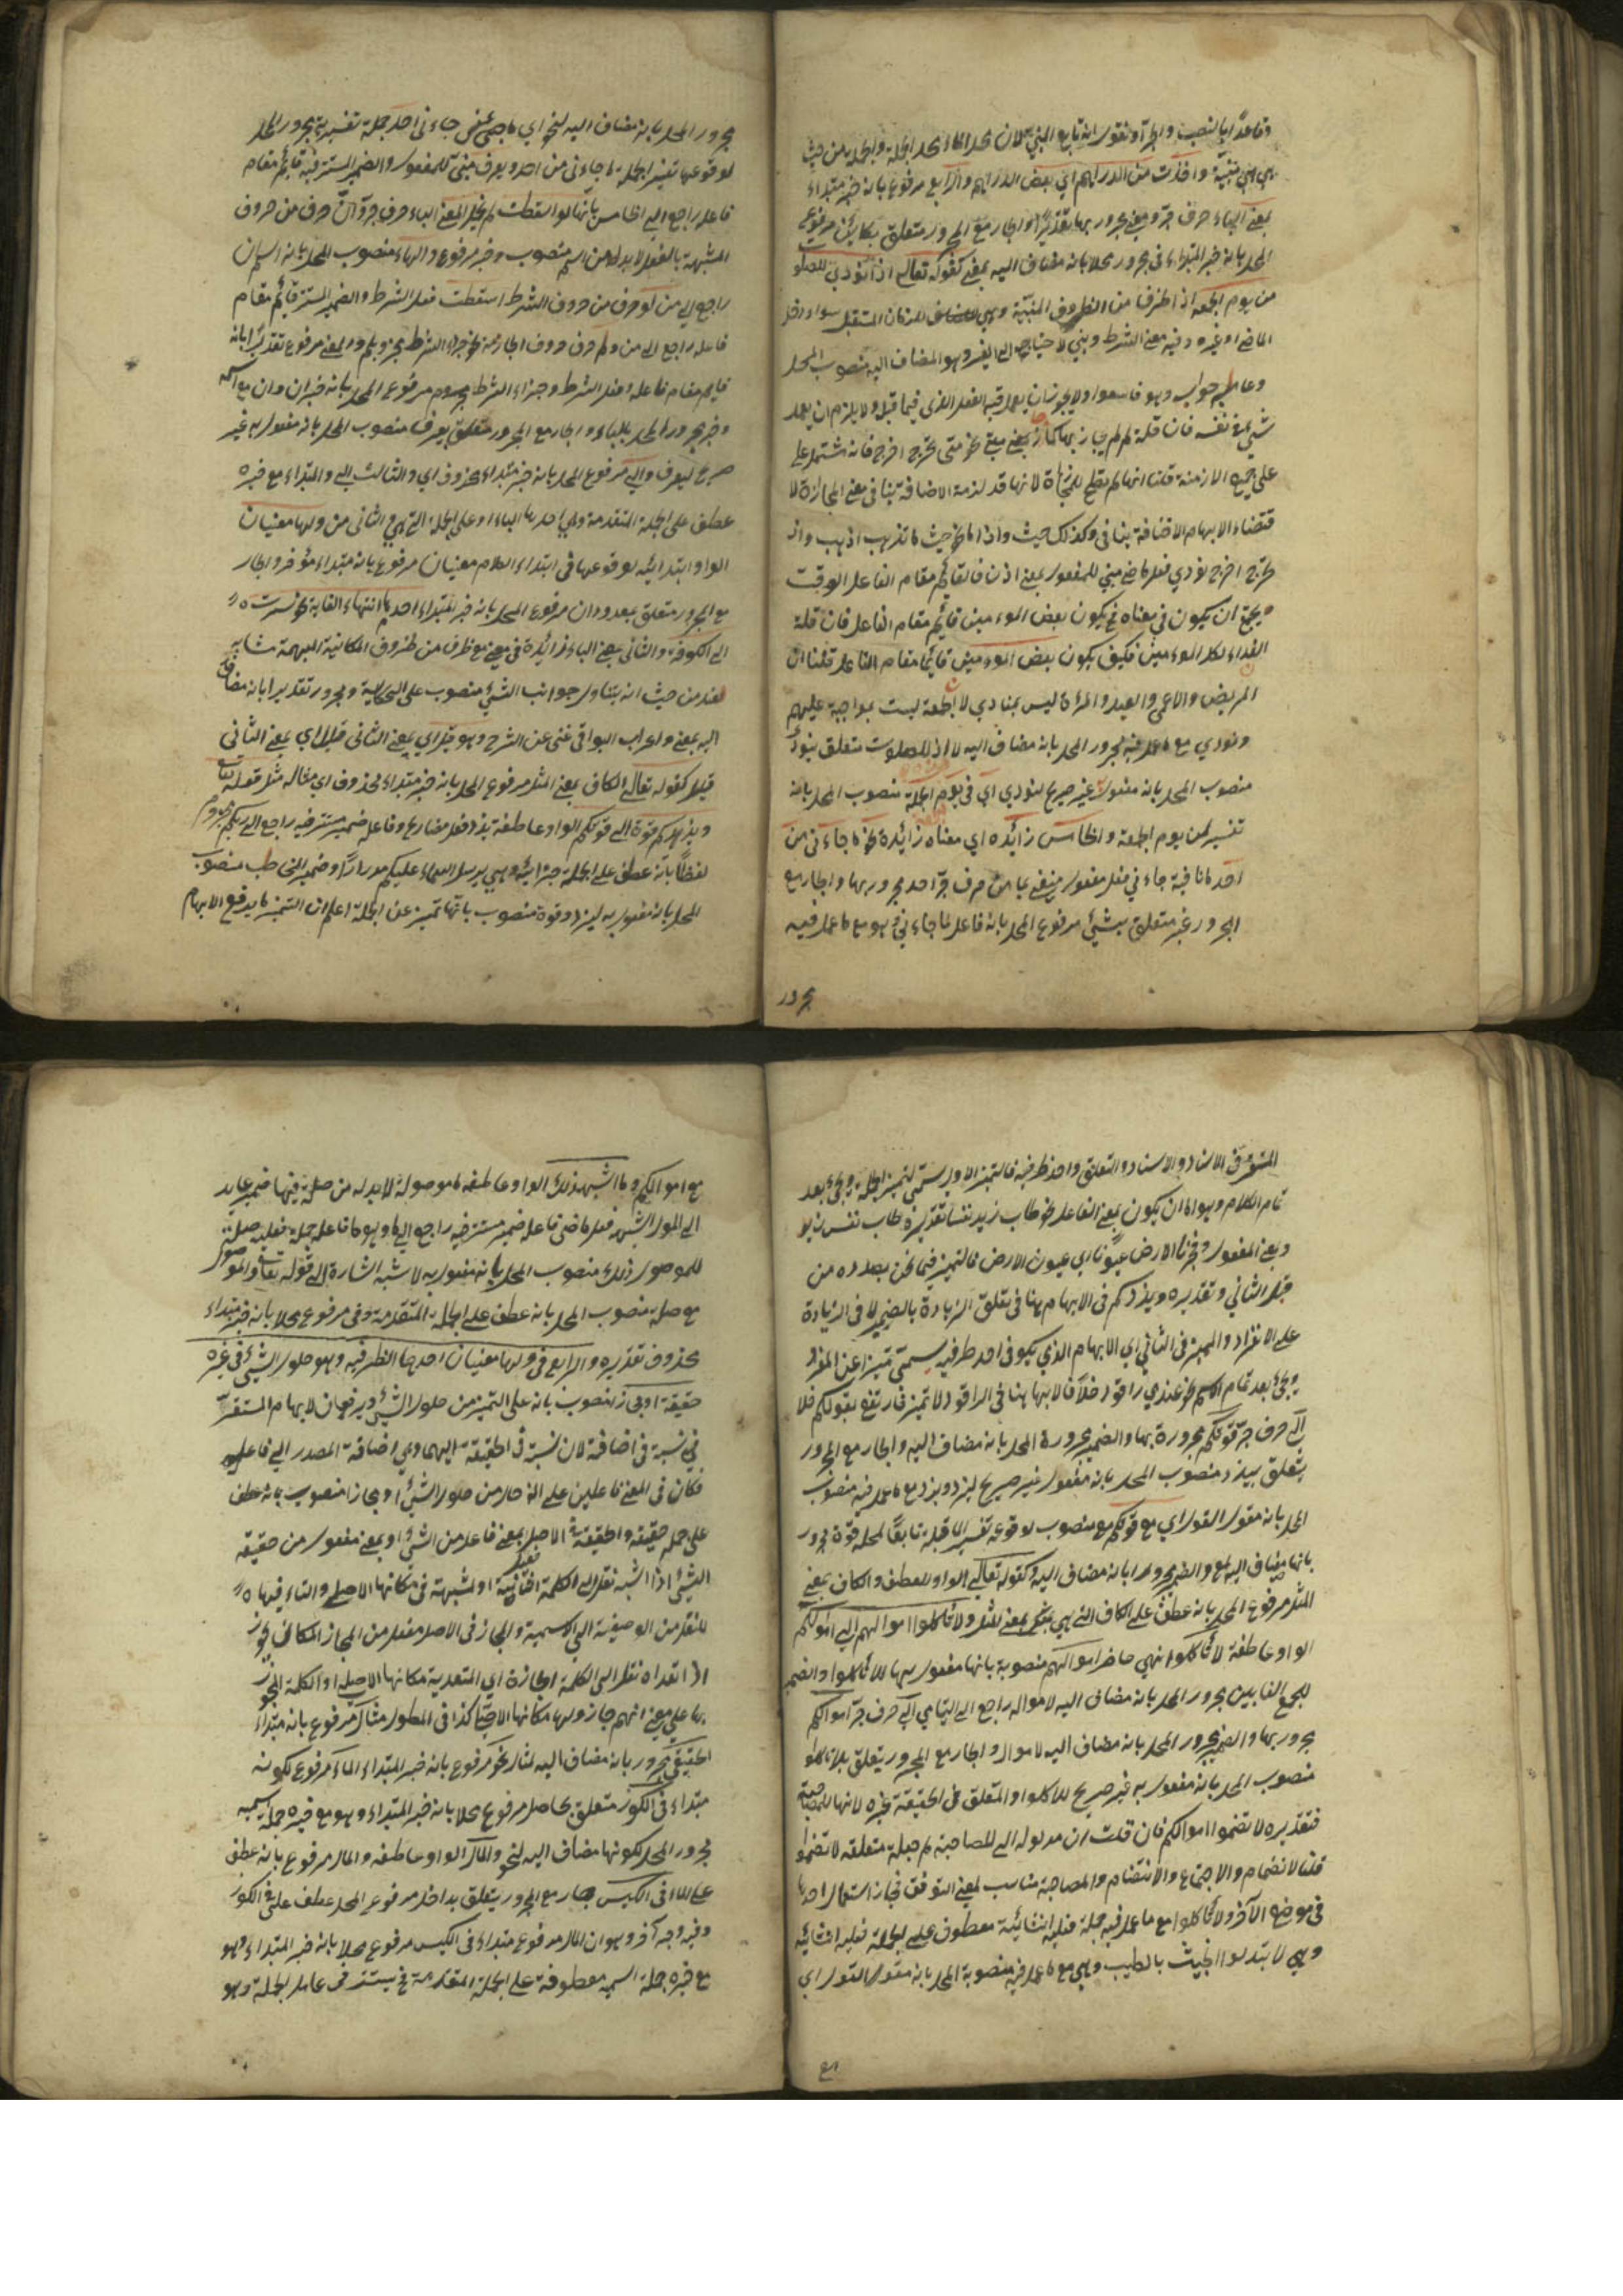 وقاعدًا بالنصب والجر او نقول انه تابع المبني لان محل الحاء محل الجملة والجملة من حيث
هي هي مبنية واخذت من الدراهم اي بعض الدراهم والرابع مرفوع بانه خبر مبتداء
بمعنى الباء حرف جر ومعنى مجرور بها تقديرًا والجار مع المجرور متعلق بكائن مرفوع
المحل بانه خبر المبتداء في مجرور محلا بانه مضاف اليه بمعنى كقوله تعالى اذا نودي للصلوة
من يوم الجمعة اذا ظرف من الظروف المبنية وهي للزمان المستقبل سواء دخل
الماضي او غيره وفيه معنى الشرط وبني لاحتياجه الى الغير وهو المضاف اليه منصوب المحل
وعامله جوابه وهو فاسعوا ولا يجوز ان يعمل فيه الفعل الذي فيما قبل ولا يلزم ان يعمل
شيئ في نفسه فان قلت لم لم يجاز بها كما جاز بمعنى متى نحو متى تخرج اخرج فانه مشتمل على
على جميع الازمنة قلنا انها لم يقطع للمجازاة لانها قد لزمت الاضافة تنافي معنى المجازاة لا
قتضاء الابهام الاضافة ينافي وكذلك حيث واذا ما نحو حيث ما تذهب اذهب واذ
تخرج اخرج نودي فعل ماضي مبني للمفعول بمعنى اذن فالقائم مقام الفاعل الوقت
يجمع ان يكون في معناه في يكون بعض المومنين قائم مقام الفاعل فان قلت
النداء لكل المومنين فكيف يكون بعض المومنين قائما مقام الفاعل قلنا ان
المريض والاعمى والعبد والمرءة ليس بمنادي لان الجمعة ليست بواجبة عليهم
ونودي مع ما عمل فيه مجرور المحل بانه مضاف اليه لاذا للصلوت متعلق بنودي
منصوب المحل بانه مفعول غير صريح لنودي اي في يوم الجملة منصوب المحل بانه
تفسير لمن يوم الجمعة والخامس زائدة اي معناه زائدة نحو ما جاءني من
احد ما نافية جاءني فعل مفعول من حرف جر احد مجرور بها والجار مع
المجرور غير متعلق بشيئ مرفوع المحل بانه فاعل لما جاءني وهو مع ما عمل فيه
مجرور
مجرور المحل بانه مضاف اليه لنحو اي ما جاءني احد جملة تفسيرية مجرور المحل
لوقوعها تفسير الجملة ما جاءني من احد ويعرف مبني للمفعول والضمير المستتر فيه قائم مقام
فاعله راجع الى الخامس بانها لو اسقطت لم يخل المعنى الباء حرف جر وان حرف من حروف
المشبهة بالفعل لا بد له من اسم منصوب وخبر مرفوع والهاء منصوب المحل بانه اسم ان
راجع الى من لو حرف من حروف الشرط اسقطت فعل الشرط والضمير المستتر قائم مقام
فاعله راجع الى من ولم حرف حروف الجازمة يخل جزاء الشرط مجزوم بلم والمعنى مرفوع تقديرا بانه
قائم مقام فاعله وفعل الشرط وجزاء الشرط مرفوع المحل بانه خبر ان وان مع اسمه
وخبره مجرور المحل بالباء والجار مع المجرور متعلق بيعرف منصوب المحل بانه مفعول به غير
صريح ليعرف والى مرفوع المحل بانه خبر مبتداء محذوف اي والثالث الى والمبتداء مع خبره
عطف على الجملة المتقدمة وهي احدها الباء او على الجملة التي هي والثاني من ولها معنيان
الواو ابتدائية لوقوعها في ابتداء الكلام معنيان مرفوع بانه مبتداء مؤخر والجار
مع المجرور متعلق بمعدودان مرفوع المحل بانه خبر المبتداء احدهما انتهاء الغاية نحو سرت
الى الكوفة والثاني بمعنى الباء زائدة في معنى مع ظرف من ظروف المكانية المبهمة مشابه
لعند من حيث انه يتناول جوانب الشيئ منصوب على الحكاية ومجرور تقديرا بانه مضاف
اليه بمعنى واعراب البواقي غني عن الشرح وهو قليل اي بمعنى الثاني قليل اي بمعنى الثاني
قليل كقوله تعالى الكاف بمعنى المثل مرفوع المحل بانه خبر مبتداء محذوف اي مثاله مثل قوله تعالى
ويزدكم قوة الى قوتكم الواو عاطفة يزد فعل مضارع وفاعله ضمير مستتر فيه راجع الى ربكم مجزوم
لفظًا بانه عطف على الجملة جزائية وهي يرسل السماء عليكم مدرارًا وضمير المخاطب منصوب
المحل بانه مفعول به ليزد وقوة منصوب بانها تميز عن الجملة اعلم ان التميز ما يرفع الابهام
المستقر في الاسناد والتعلق واحد طرفيه فالتميز الاول يسمى تميز الجملة ويجيئ بعد
تمام الكلام وهو اما ان يكون بمعنى الفاعل نحو طاب زيد نفسا تقديره طاب نفس زيد
وبمعنى المفعول وفجرنا الارض عيونًا اي عيون الارض فالتميز فيما نحن بصدده من
قبيل الثاني وتقديره ويزدكم في الابهام هنا في تعلق الزيادة بالضمير لا في الزيادة
على الانفراد والمميز في الثاني اي الابهام الذي يكون في احد طرفيه يسمى تميزا عن المفرد
يجيئ بعد تمام الاسم نحو عندي راقود خلًا فالابهام هنا في الراقود لا تميز فارتفع بقولكم خلا
الى حرف جر قوتكم مجرورة بها والضمير مجرورة المحل بانه مضاف اليه والجار مع المجرور
يتعلق بيزد منصوب المحل بانه مفعول غير صريح ليزد ويزد مع ما عمل فيه منصوب
المحل بانه مقول القول اي مع قوتكم مع منصوب لوقوعه تفسير لما قبله تابعًا لمحله قوة مجرور
بانها مضاف اليه لمع والضمير مجرور بانه مضاف اليه وكقوله تعالى الواو للعطف والكاف بمعنى
المثل مرفوع المحل بانه عطف على الكاف التي هي بمعنى المثل ولا تأكلوا اموالهم الى اموالكم
الواو عاطفة لا تأكلوا نهي حاضر اموالهم منصوبة بانها مفعول بها للا تأكلوا والضمير
للجمع الغائبين مجرور المحل بانه مضاف اليه لاموال راجع الى اليتامي الى حرف جر اموالكم
مجرور بها والضمير مجرور المحل بانه مضاف اليه لاموال والجار مع المجرور يتعلق بلا تأكلوا
منصوب المحل بانه مفعول به غير صريح للا تأكلوا والمتعلق في الحقيقة غيره لانها للمصاحبة
فتقديره لا تضموا اموالكم فان قلت ان مدلول الى للمصاحبة لم جعلت متعلقه لا تضموا
قلنا لا نضمام والاجتماع والانتضام والمصاحبة مناسب لمعنى التوفق فجاز استعمال احدها
في موضع الآخر ولا تأكلوا مع ما عمل فيه جملة فعلية انشائية معطوف على جملة فعلية انشائية
وهي لا تتبدلوا الخبيث بالطيب وهي مع ما عمل فيه منصوبة المحل بانه مقول القول اي
مع
مع اموالكم وما اشبه ذلك الواو عاطفة ما موصولة لا بد له من صلة فيها ضمير عايد
الى الموصول اشبه فعل ماضي فاعله ضمير مستتر فيه راجع الى ما وهو مع فاعله جملة فعلية صلة
للموصول ذلك منصوب المحل بانه مفعول به لاشبه اشارة الى قوله تعالى والموصول
مع صلته منصوب المحل بانه عطف على الجملة المتقدمة وفي مرفوع محلا بانه خبر مبتداء
محذوف تقديره والرابع في ولها معنيان احدهما الظرفية وهو حلول الشيئ في غيره
حقيقة او مجازا منصوب بانه على التميز من حلول الشيئ ويرفعان لابهام المستقر
في نسبة في اضافة لان نسبة في الحقيقة اليهما وهي اضافة المصدر الى فاعله
فكان في المعنى فاعلين على انه حال من حلول الشيئ او مجازا منصوب بانه عطف
على جملة حقيقة والحقيقة في الاصل بمعنى فاعل من الشيئ او بمعنى مفعول من حقيقة
الشيئ اذا اثبته نقل الى الكلمة الثابتة او المثبتة في مكانها الاصلي والتاء فيها
للنقل من الوصفية الى الاسمية والمجاز في الاصل مفعل من المجاز المكان يجوز
اذا تعداه نقل الى الكلمة الجائزة اي المتعدية مكانها الاصلي او الكلمة المجوز
بها على معنى انهم جازوا بها مكانها الاصليّ كذا في المطول مثال مرفوع بانه مبتداء
الحقيقي مجرور بانه مضاف اليه لمثال نحو مرفوع بانه خبر المبتداء الماء مرفوع لكونه
مبتداء في الكوز متعلق بحاصل مرفوع محلا بانه خبر المبتداء وهو مع خبره جملة اسمية
مجرور المحل لكونها مضاف اليه لنحو والمال الواو عاطفة والمال مرفوع بانه عطف
على الماء في الكيس جار مع المجرور يتعلق بداخل مرفوع المحل عطف على في الكوز
وفيه وجه آخر وهو ان المال مرفوع مبتداء في الكيس مرفوع محلا بانه خبر المبتداء وهو
مع خبره جملة اسمية معطوفة على الجملة المتقدمة في يستتر في عامل الجملة وهو